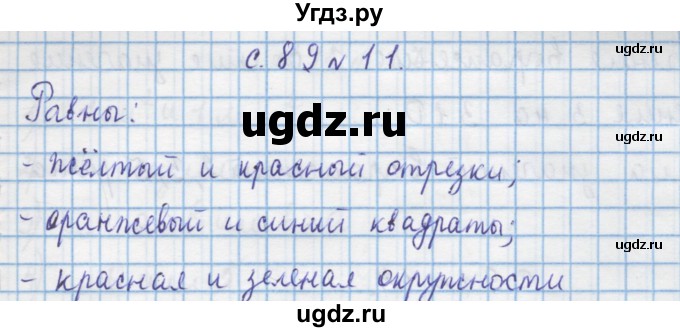 Угдз.ру
с. 89 № 11.
ugdz.ru
Равны:
ugdz.ru
ugdz.ru
- жёлтый и красный отрезки;
ugdz.ru
- оранжевый и синий квадраты;
ugdz.ru
- красная и зеленая окружности
ugdz.ru
Угдз.ру